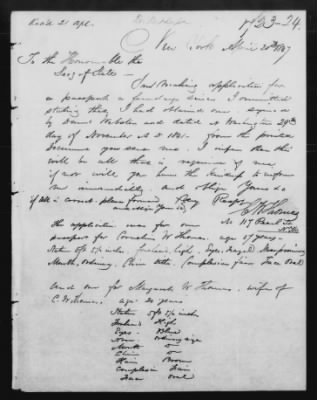 Recd 21 Apl.
New York April 20th
To the Honourable the
Secy of State
Sir Making application for
a passport a few days since I omitted
stating that I had obtained one signed
by Daniel Webster and dated at Washington 28th
day of November A D 1841. From the printed
Document you sent me I infer that this
will be all that is required of me
if not will you have the kindness to inform
me immediately and oblige Yours &c
if all is correct please forward Very Respy
C W Thomas
No 117 Pearl St
N York
The application was for one
passport for Cornelius W Thomas age 37 years
Stature 5 ft inches Forehead high Eyes
Mouth, ordinary Chin Complexion fair Face Oval
And one for Margaret W Thomas wife of
C W Thomas age years
Stature 5 ft inches
Forehead High
Eyes Blue
Nose Ordinary size
Mouth
Chin
Hair Brown
Complexion Fair
Face Oval